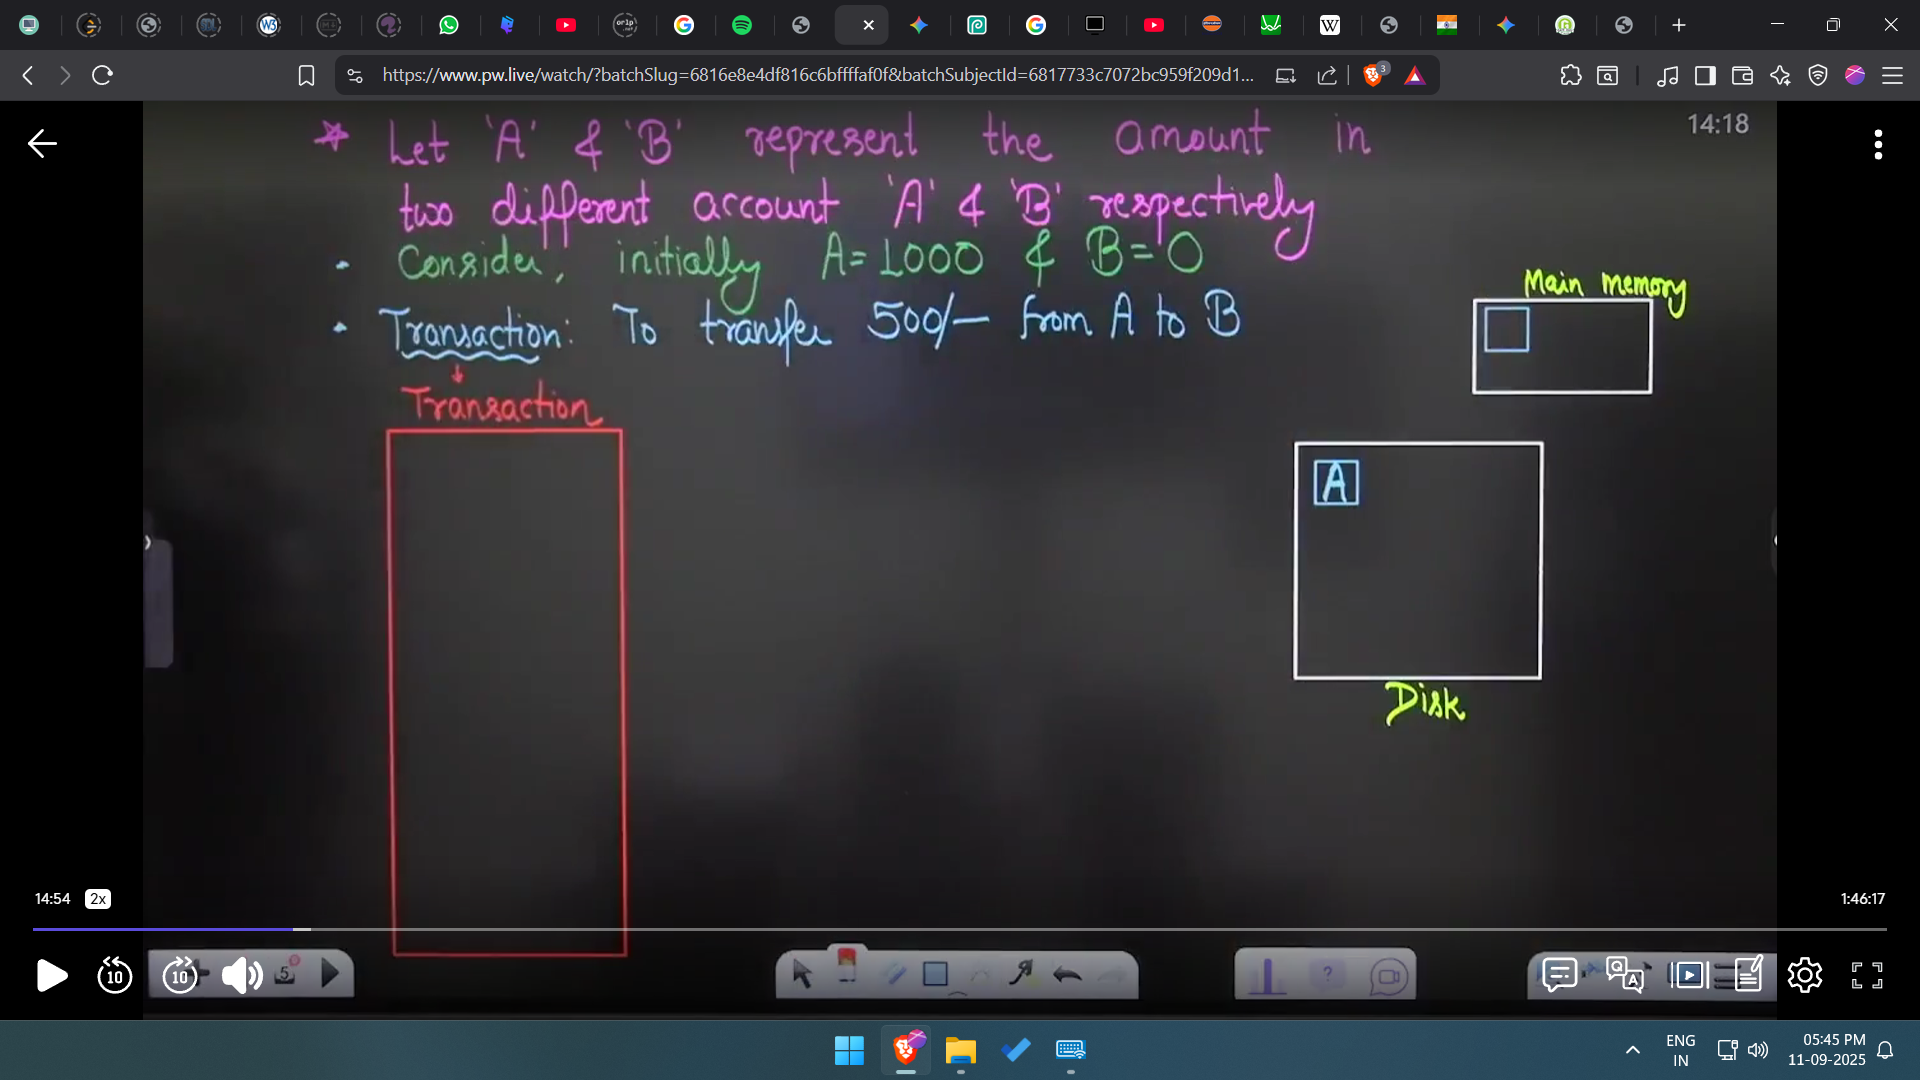 https://www.pw.live/watch/?batchSlug=6816e8e4df816c6bffffaf0f&batchSubjectId=6817733c7072bc959f209d1...
3
14:18
☆ Let 'A' & 'B' represent the amount in
two different account 'A' & 'B' respectively
• Consider, initially A=1000 & B=0
• Transaction: To transfer 500/- from A to B
Main memory
Transaction
A
Disk
14:54 2x
1:46:17
10
10
5
ENG
IN
05:45 PM
11-09-2025